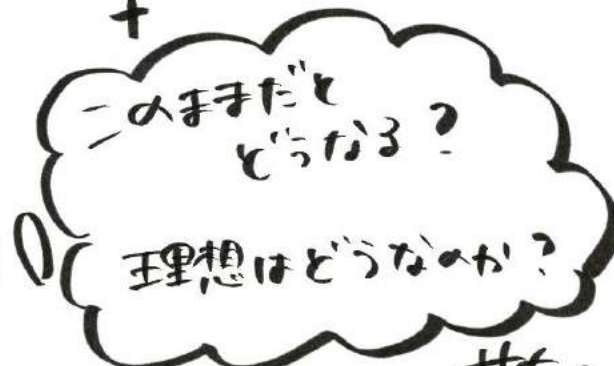 +
このままだと
どうなる?
理想はどうなのか?